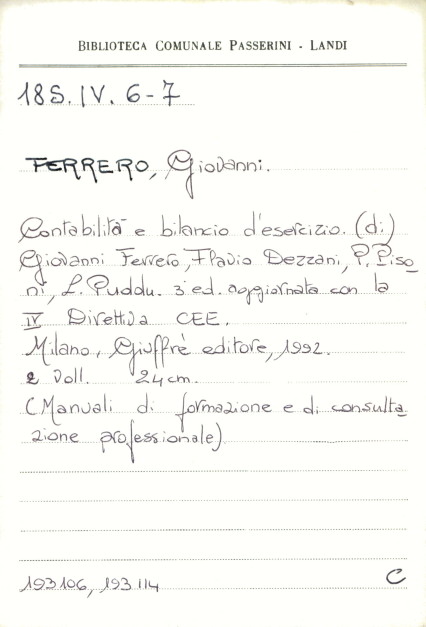 BIBLIOTECA COMUNALE PASSERINI - LANDI
18S. IV. 6-7
FERRERO, Giovanni.
Contabilità e bilancio d'esercizio. (di)
Giovanni Ferrero, Flavio Dezzani, P. Piso
ni, L. Puddu. 3ª ed. aggiornata con la
IV Direttiva CEE.
Milano, Giuffrè editore, 1992.
2 voll. 24 cm.
(Manuali di formazione e di consulta
zione professionale)
193106, 193114
C